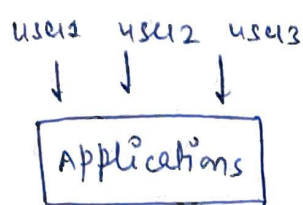 user1 user2 user3
Applications